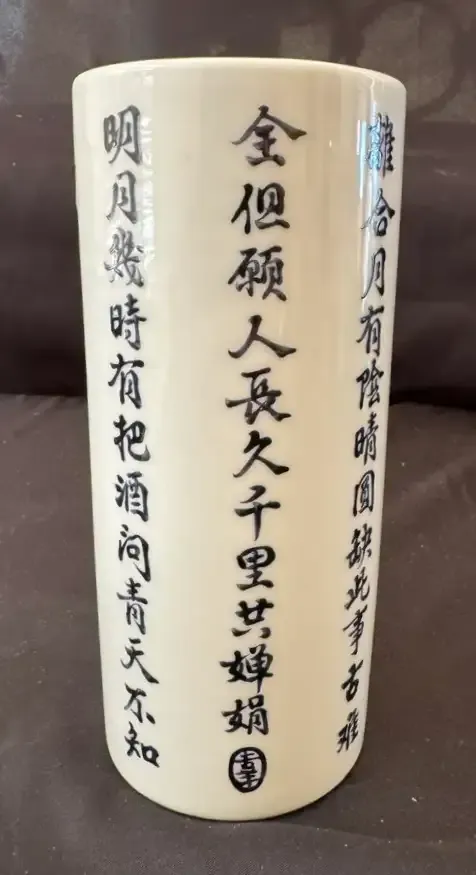 離合月有陰晴圓缺此事古難
全但願人長久千里共嬋娟
明月幾時有把酒問青天不知